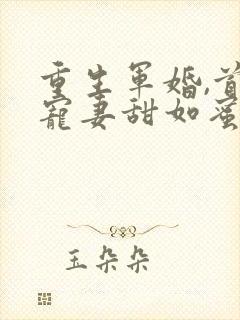 重生军婚,首
宠妻甜如蜜
玉朵朵